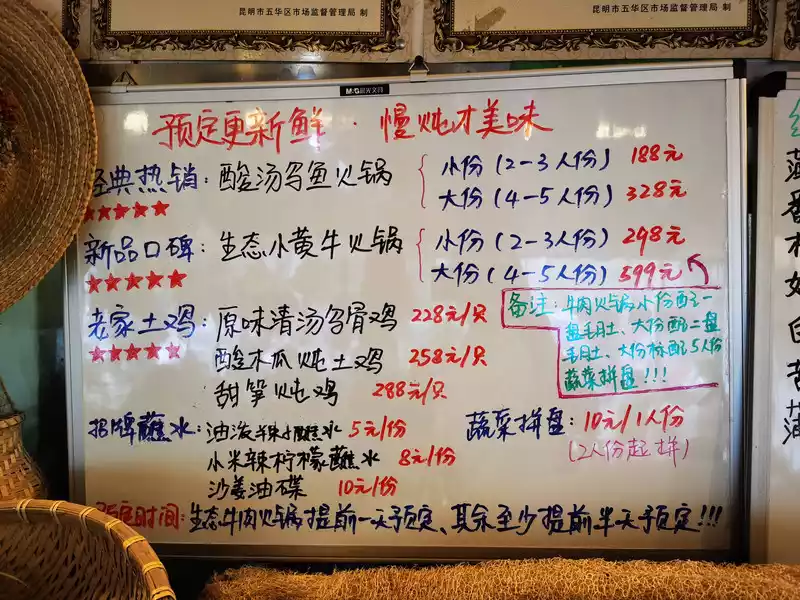 昆明市五华区市场监督管理局 制
昆明市五华区市场监督管理局 制
M&G 晨光文具
预定更新鲜·慢炖才美味
经典热销:酸汤乌鱼火锅
小份(2-3人份) 188元
大份(4-5人份) 328元
★★★★★
新品口碑:生态小黄牛火锅
小份(2-3人份) 298元
大份(4-5人份) 599元
★★★★★
备注:牛肉火锅小份配一
盘毛肚、大份配二盘
毛肚、大份标配5人份
蔬菜拼盘!!!
老家土鸡:原味清汤乌骨鸡 228元/只
★★★★★
酸木瓜炖土鸡 258元/只
甜笋炖鸡 288元/只
招牌蘸水:油泼辣子蘸水 5元/份
小米辣柠檬蘸水 8元/份
沙姜油碟 10元/份
蔬菜拼盘:10元/1人份
(2人份起拼)
预定时间:生态牛肉火锅提前一天预定、其余至少提前半天预定!!!